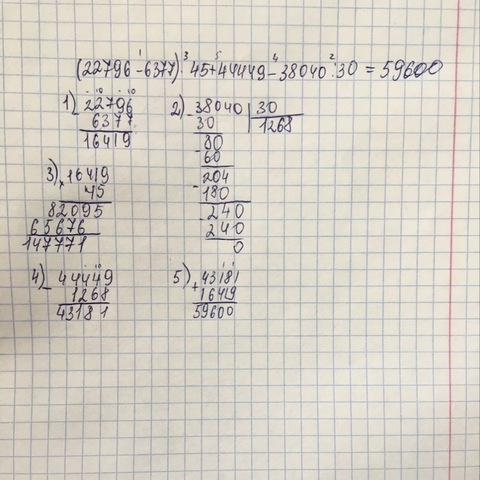 (22796 - 6377) · 45 + 44449 - 38040 : 30 = 59600
1) 22796
6377
16419
2) 38040 | 30
30 1268
80
60
204
180
240
240
0
3) × 16419
45
82095
65676
147771
4) - 44449
1268
43181
5) + 43181
16419
59600